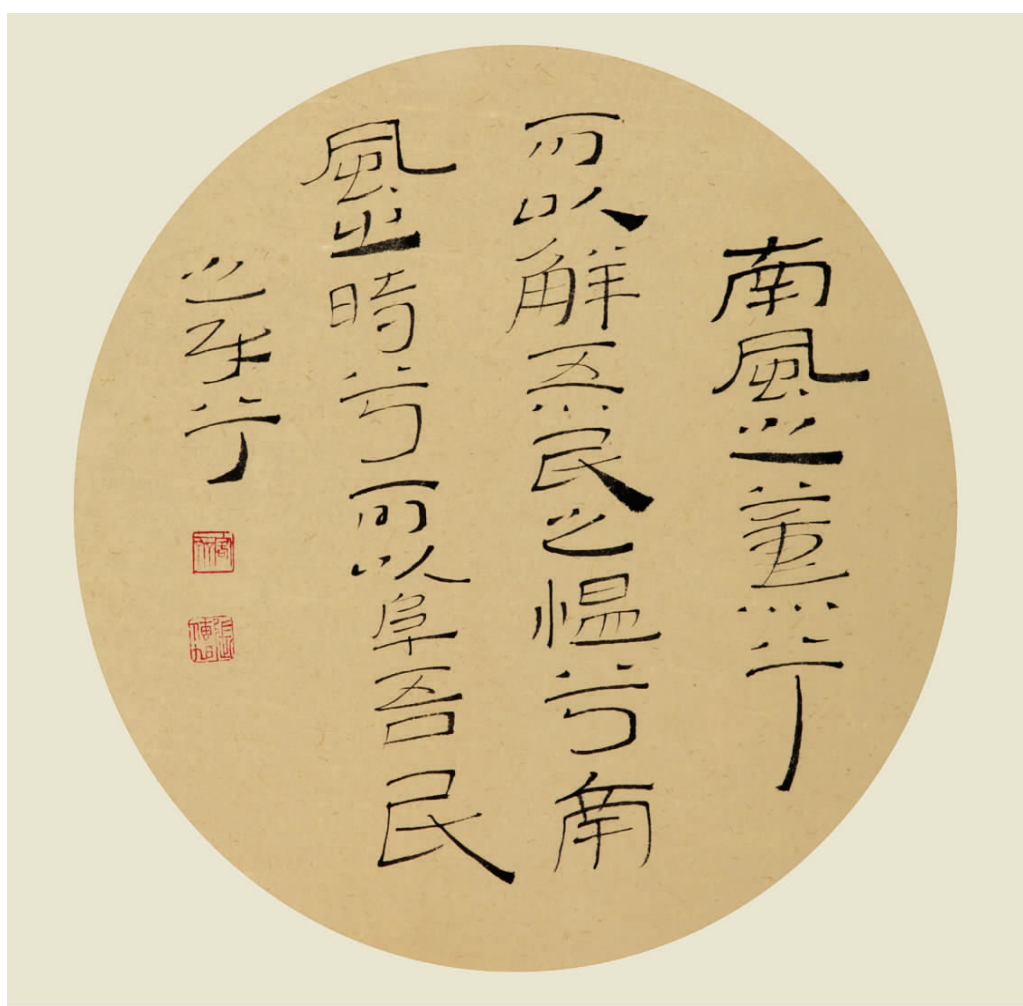 南風之薰兮
可以解吾民之愠兮南
風之時兮可以阜吾民
之財兮